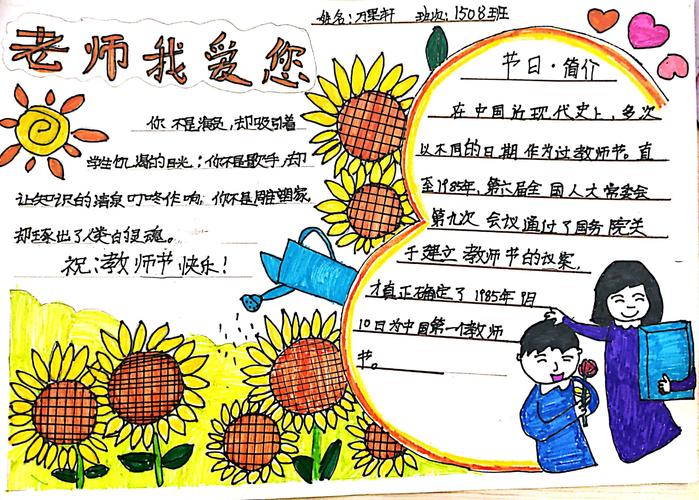 姓名:万梁轩 班次:1508班
老师我爱您
你不是演员,却吸引着
学生饥渴的目光;你不是歌手,却
让知识的清泉叮咚作响,你不是雕塑家,
却琢出了人类的灵魂。
祝:教师节快乐!
节日·简介
在中国的现代史上,多次
以不同的日期作为过教师节。直
至1985年,第六届全国人大常委会
第九次会议通过了国务院关
于建立教师节的议案,
才真正确定了1985年9月
10日为中国第一个教师
节。